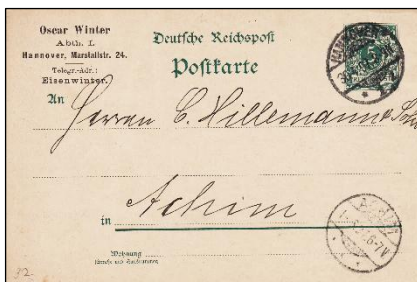 Oscar Winter
Abth. I.
Hannover, Marstallstr. 24.
Telegr.-Adr.:
Eisenwinter.
Deutsche Reichspost
Postkarte
An
Herren C. Hillemann
in Achim
Wohnung